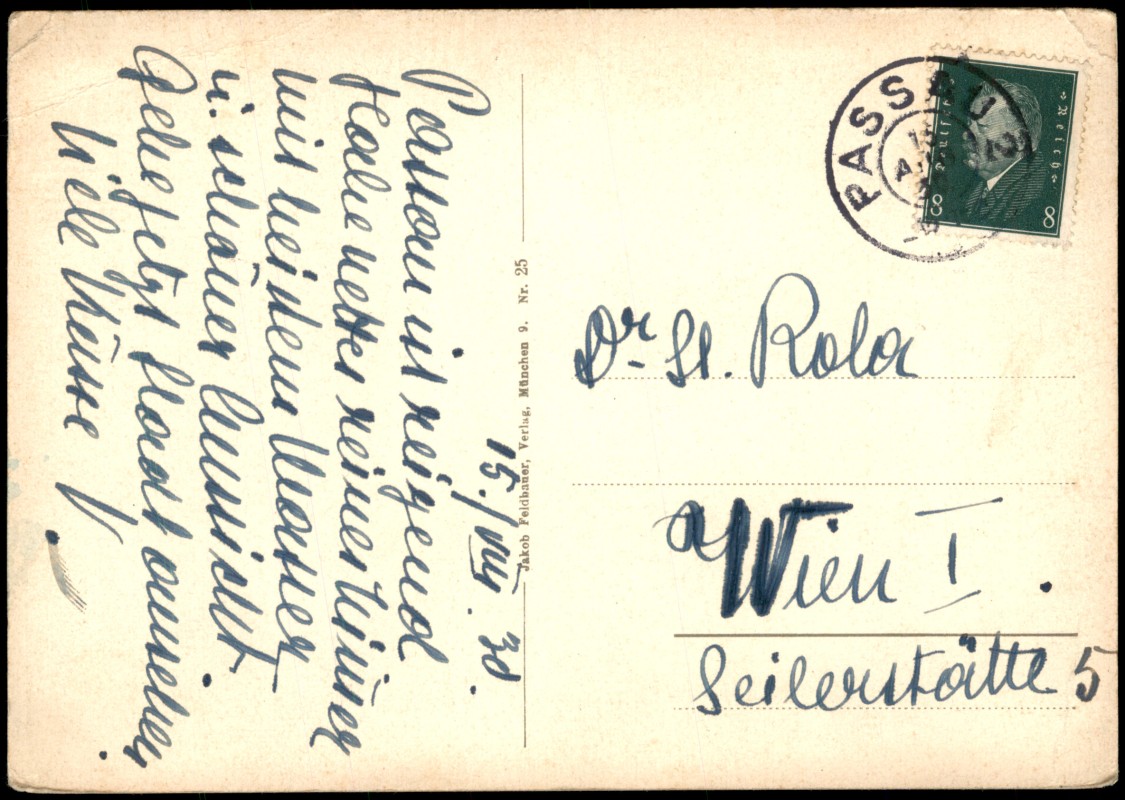 15./VIII. 30.
Passau ist reizend
Habe nettes reines Zimmer
mit heißem Wasser
u. schöner Aussicht.
Gehe jetzt Stadt ansehen.
Viele Küsse
Jakob Feldbauer, Verlag, München 9. Nr. 25
PASSAU 2
Deutsches Reich
8 8
Dr. St. Rola
Wien I.
Seilerstätte 5